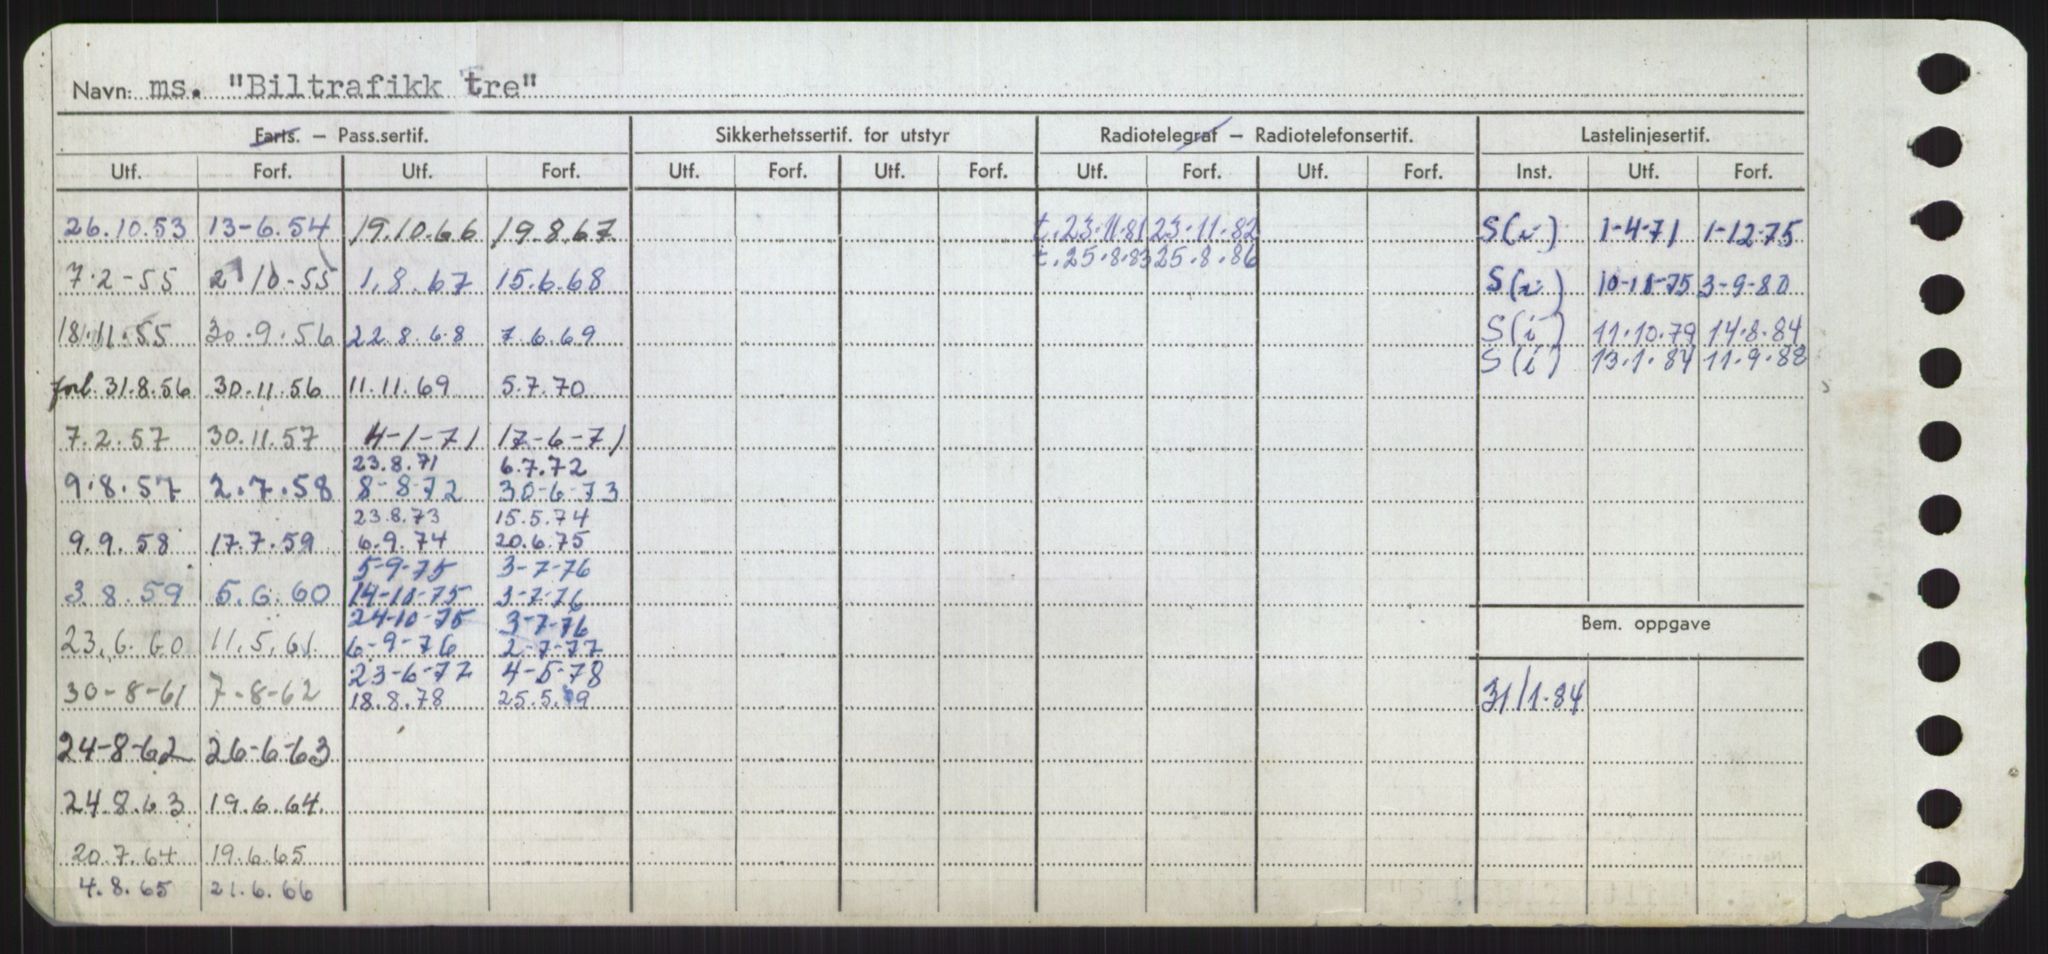 Navn: ms. "Biltrafikk tre"
Farts. — Pass.sertif. Sikkerhetssertif. for utstyr Radiotelegraf — Radiotelefonsertif. Lastelinjesertif.
Utf. Forf. Utf. Forf. Utf. Forf. Utf. Forf. Utf. Forf. Utf. Forf. Inst. Utf. Forf.
26.10.53 13-6.54 19.10.66 19.8.67 t.23.11.81 23.11.82 S(i) 1-4-71 1-12-75
t.25.8.83 25.8.86
7.2-55 2 10-55 1.8.67 15.6.68 S(i) 10-10-75 3-9-80
18.11.55 30.9.56 22.8.68 7.6.69 S(i) 11.10.79 14.8.84
S(i) 13.1.84 11.9.88
forl. 31.8.56 30.11.56 11.11.69 5.7.70
7.2.57 30.11.57 4-1-71 17-6-71
23.8.71 6.7.72
9.8.57 2.7.58 8-8-72 30-6-73
23.8.73 15.5.74
9.9.58 17.7.59 6.9.74 20.6.75
5-9-75 3-7-76
3.8.59 5.6.60 14-10-75 3-7-76
24-10-75 3-7-76
Bem. oppgave
23.6.60 11.5.61 6-9-76 2-7-77
23-6-77 4-5-78
30-8-61 7-8-62 18.8.78 25.5.79 31/1.84
24-8-62 26-6-63
24.8.63 19.6.64.
20.7.64 19.6.65
4.8.65 21.6.66